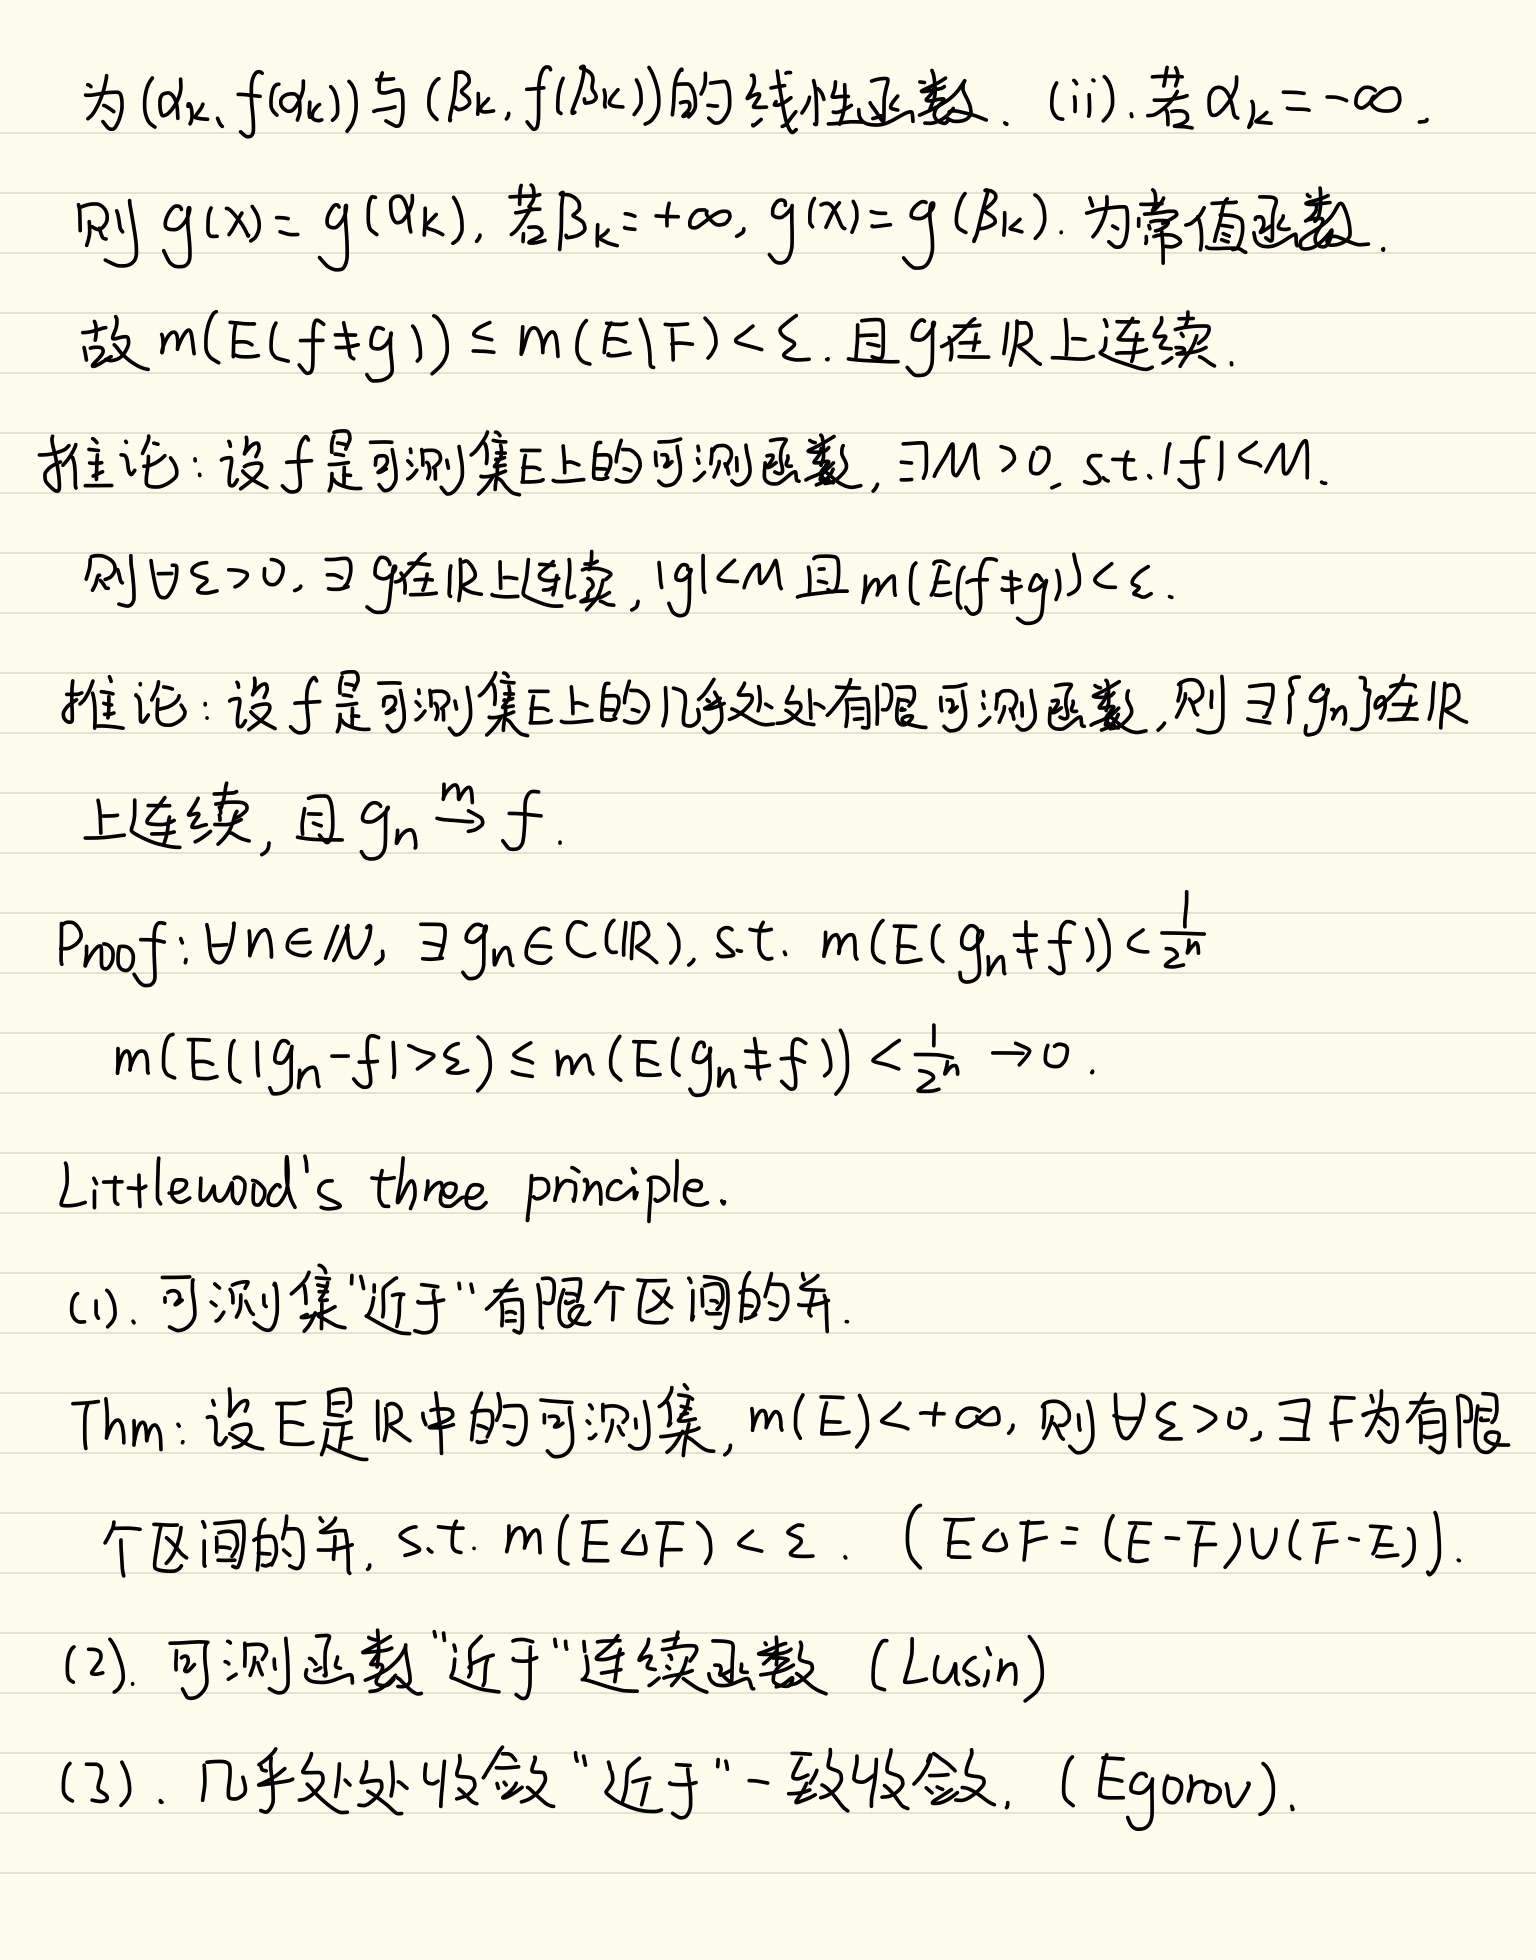 为(αk, f(αk))与(βk, f(βk))的线性函数. (ii). 若αk=-∞.
则 g(x)=g(αk), 若βk=+∞, g(x)=g(βk). 为常值函数.
故 m(E(f≠g)) ≤ m(E\F)<ε. 且g在ℝ上连续.
推论: 设f是可测集E上的可测函数, ∃M>0, s.t. |f|<M.
则∀ε>0, ∃g在ℝ上连续, |g|<M 且 m(E(f≠g))<ε.
推论: 设f是可测集E上的几乎处处有限可测函数, 则∃{gn}在ℝ
上连续, 且 gn →^m f.
Proof: ∀n∈ℕ, ∃gn∈C(ℝ), s.t. m(E(gn≠f))<1/2^n
m(E(|gn-f|>ε) ≤ m(E(gn≠f))<1/2^n →0.
Littlewood's three principle.
(1). 可测集"近于"有限个区间的并.
Thm: 设E是ℝ中的可测集, m(E)<+∞, 则∀ε>0, ∃F为有限
个区间的并, s.t. m(E△F)<ε. (E△F=(E-F)∪(F-E)).
(2). 可测函数"近于"连续函数 (Lusin)
(3). 几乎处处收敛"近于"一致收敛. (Egorov).